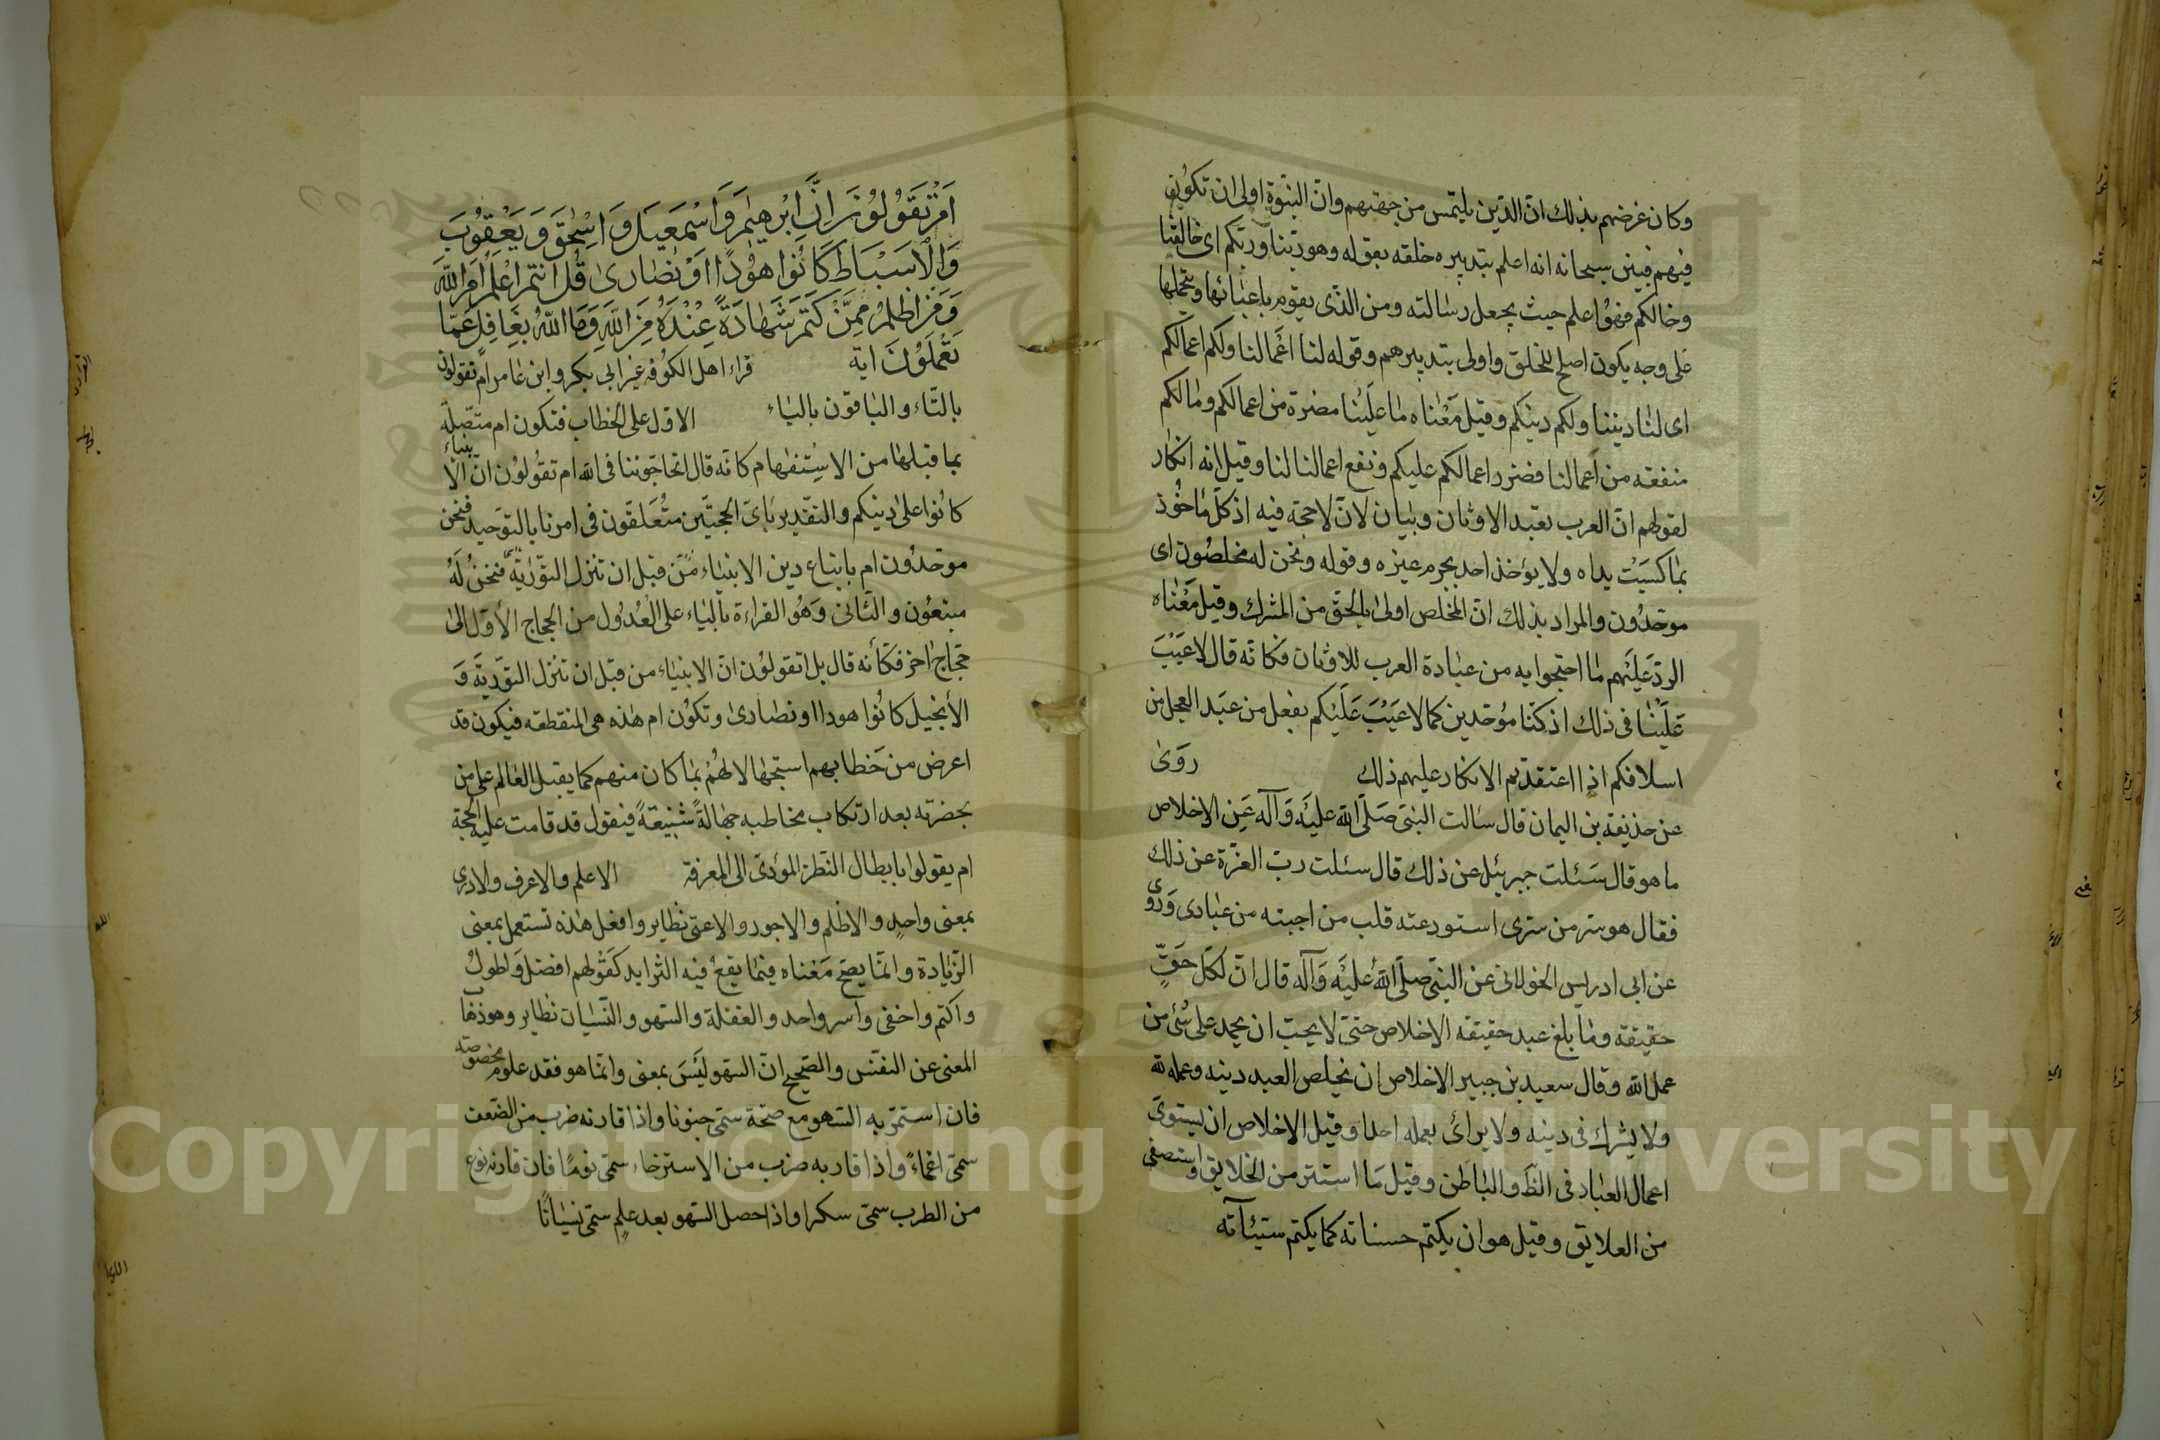 وكان غرضهم بذلك انّ الدّين يلتمس من جهتهم وانّ النبّوة اولى ان تكون
فيهم فبيّن سبحانه انه اعلم بتدبيره خلقه بقوله وهو ربّنا وربّكم اى خالقنا
وخالكم فهو اعلم حيث يجعل رسالته ومن الذّى يقوم باعبائها ويتحملها
على وجه يكون اصلح للخلق واولى بتدبيرهم وقوله لنا اعمالنا ولكم اعمالكم
اى لنا ديننا ولكم دينكم وقيل معناه ما علينا مضرة من اعمالكم ومالكم
منفعه من اعمالنا فضرر اعمالكم عليكم ونفع اعمالنا لنا وقيل انه انكار
لقولهم انّ العرب تعبد الاوثان وبيان لانّ لا حجّة فيه اذ كلّ ماخوذ
بما كسبت يداه ولا يؤخذ احد بجرم غيره وقوله ونحن له مخلصون اى
موحّدون والمراد بذلك انّ المخلص اولى بالحقّ من المشرك وقيل معناه
الردّ عليهم ما احتجوا به من عبادة العرب للاوثان فكانّه قال لا عيب
علينا فى ذلك اذ كنّا موحّدين كما لا عيب عليكم بفعل من عبد العجل من
اسلافكم اذا اعتقدتم الانكار عليهم ذلك روى
عن حذيفه بن اليمان قال سالت النبى صلّى الله عليه وآله عن الاخلاص
ما هو قال سئلت جبرئيل عن ذلك قال سئلت ربّ العزّة عن ذلك
فقال هو سرّ من سرّى استودعته قلب من احببته من عبادى وروى
عن ابى ادريس الخولانى عن النبىّ صلّى الله عليه وآله قال انّ لكلّ حقّ
حقيقة وما بلغ عبد حقيقة الاخلاص حتى لا يحبّ ان يحمد على شئ من
عمل الله وقال سعيد بن جبير الاخلاص ان يخلص العبد دينه وعمله لله
ولا يشرك فى دينه ولا يرائ بعمله احدا وقيل الاخلاص ان يستوى
اعمال العباد فى الظّ والباطن وقيل ما استتر من الخلايق واستصفى
من العلايق وقيل هو ان يكتم حسناته كما يكتم سيّئآته
اَمْ تَقُولُونَ اِنَّ اِبْرهِيمَ وَاسْمعِيلَ وَاسْحقَ وَيَعْقُوبَ
وَالْاَسْبَاطَ كَانُوا هُودًا اَوْ نَصارى قُل اَنتم اَعْلَمُ اَمِ اللهُ
وَمَنْ اَظْلَمُ مِمَّنْ كَتَمَ شَهَادَةً عِنْدَهُ مِنَ اللهِ وَمَا اللهُ بِغَافِلٍ عَمّا
تَعْمَلُونَ اية قراء اهل الكوفه غير ابى بكر وابن عامر ام تقولون
بالتّاء والباقون بالياء الاوّل على الخطاب فتكون ام متّصلة
بما قبلها من الاستفهام كانّه قال اتحاجّوننا فى الله ام تقولون انّ الانبياء
كانوا على دينكم والتقدير باىّ الحجتّين متعلّقون فى امرنا بالتوحيد فنحن
موحّدون ام باتباع دين الانبياء من قبل ان تنزل التّوراية فنحن له
متبعون والثّانى وهو القراءة بالياء على العدول من الحجاج الأوّل الى
حجّاج اخر فكأنه قال بل اتقولون انّ الانبياء من قبل ان تنزل التوّرية و
الأنجيل كانوا هودا او نصارى وتكون ام هذه هى المنقطعه فيكون قد
اعرض من خطابهم استجهالا لهم بما كان منهم كما يقبل العالم على من
بحضرته بعد ارتكاب مخاطبه جهالةً شنيعةً فيقول قد قامت عليه الحجّة
ام يقولوا بابطال النّظر المؤدّى الى المعرفة الاعلم والاعرف والادرى
بمعنى واحد والاظلم والاجور والاعتى نظاير وافعل هذه تستعمل بمعنى
الزّيادة وانّما يصحّ معناه فيما يقع فيه التزايد كقولهم افضل واطول
واكتم واخفى واسر واحد والغفلة والسّهو والنّسيان نظاير وهو ذهاب
المعنى عن النفّس والصّحيح انّ السّهو ليس بمعنى وانّما هو فقد علوم مخصوصه
فان استمرّ به السّهو مع صحّة سمّى جنونا واذا قارنه ضرب من الضّعف
سمّى اغماءً واذا قاربه ضرب من الاسترخاء سمّى نومًا فان قارنه نوع
من الطرب سمّى سكرا واذا حصل السّهو بعد علم سمّى نسيانًا
Copyright © King Saud University